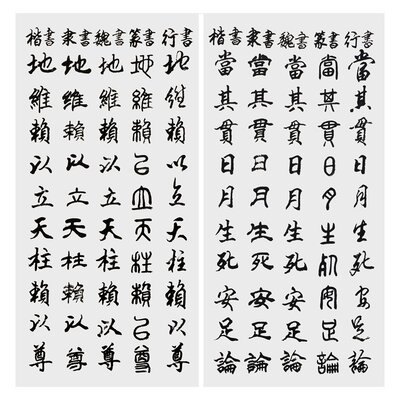 行書當其貫日月生死安足論
篆書當其貫日月生死安足論
魏書當其貫日月生死安足論
隶書當其貫日月生死安足論
楷書當其貫日月生死安足論
行書地維賴以立天柱賴以尊
篆書地維賴以立天柱賴以尊
魏書地維賴以立天柱賴以尊
隶書地維賴以立天柱賴以尊
楷書地維賴以立天柱賴以尊